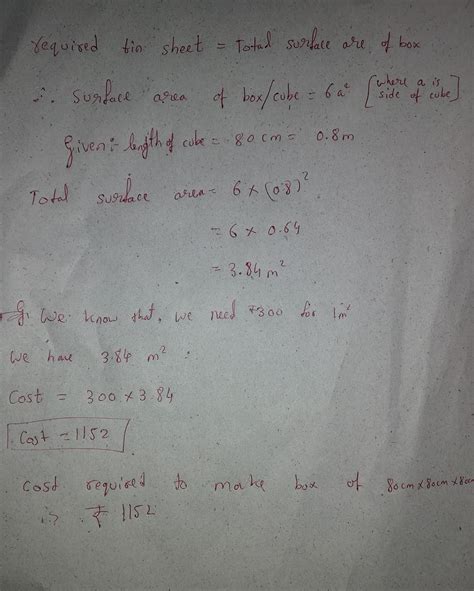 required tin sheet = Total surface are of box
∴ surface area of box/cube = 6a² [where a is side of cube]
Given:- length of cube = 80 cm = 0.8m
Total surface area = 6 × (0.8)²
= 6 × 0.64
= 3.84 m²
We know that, we need ₹300 for 1m²
We have 3.84 m²
Cost = 300 × 3.84
Cost = 1152
Cost required to make box of 80cm×80cm×80cm
is ₹ 1152